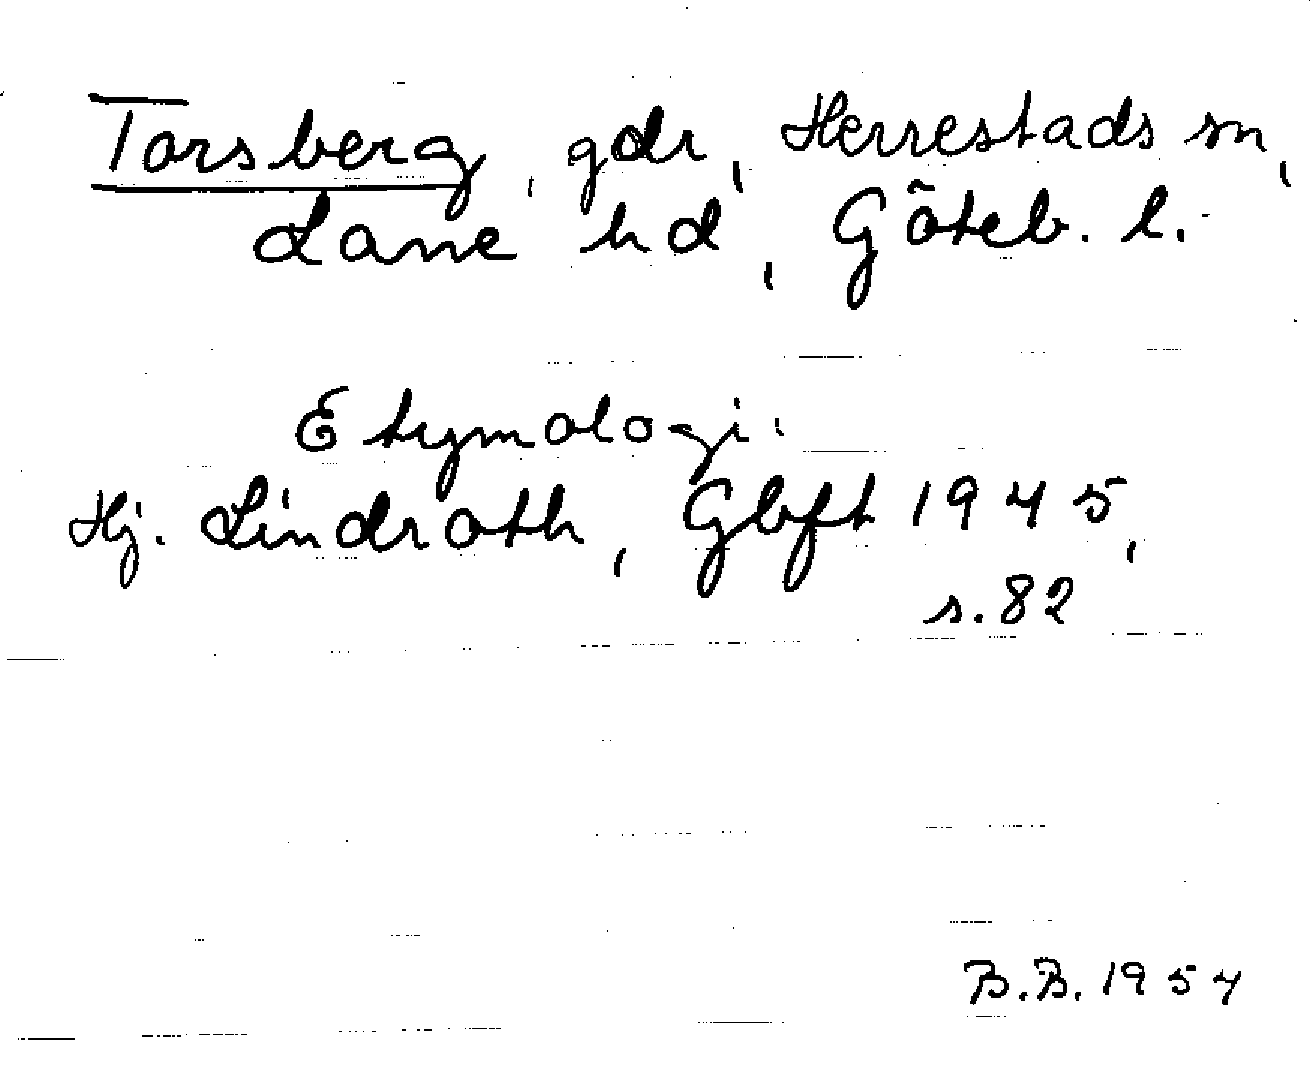 Torsberg, gdr, Herrestads sn,
Lane hd, Göteb. l.
Etymologi.
Hj. Lindroth, Gbft 1945,
s. 82
B.B. 1954